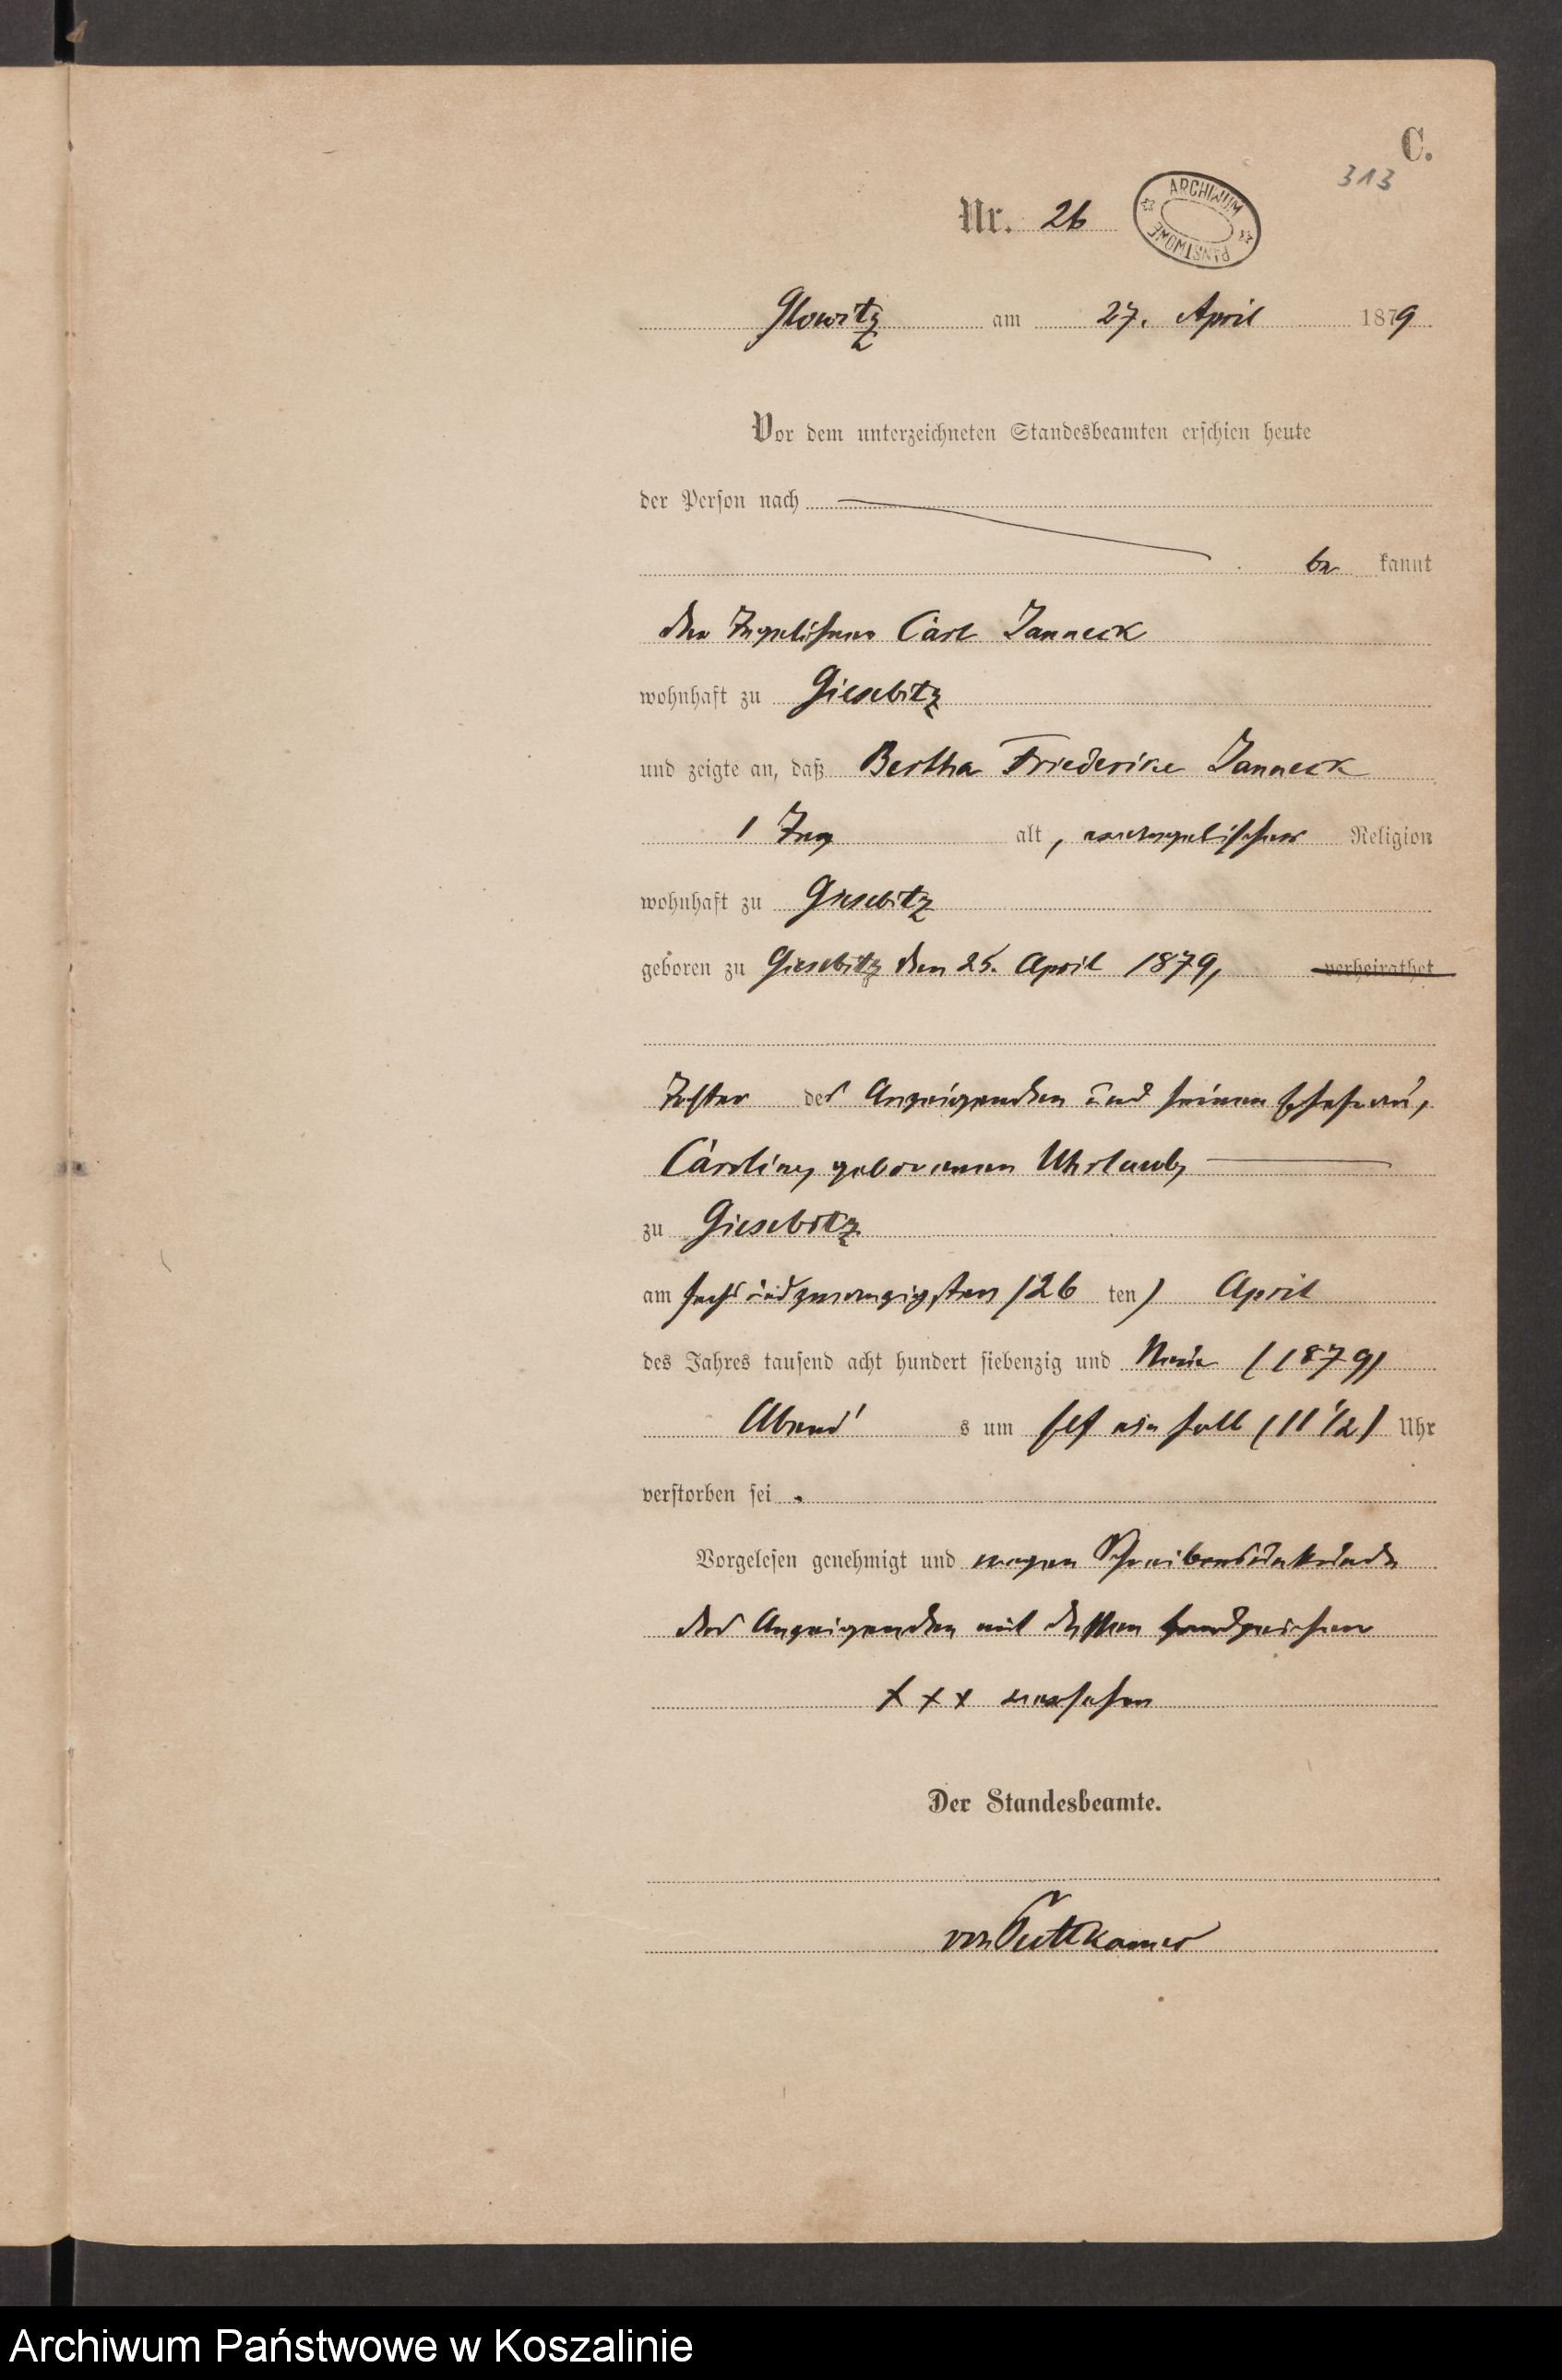 C.
313
Nr. 26
ARCHIWUM PAŃSTWOWE
Glowitz am 27. April 1879
Vor dem unterzeichneten Standesbeamten erschien heute
der Person nach
be kannt
der Tagelöhner Carl Janneck
wohnhaft zu Giesebitz
und zeigte an, daß Bertha Friederike Janneck
1 Tag alt, evangelischer Religion
wohnhaft zu Giesebitz
geboren zu Giesebitz den 25. April 1879, verheirathet
Tochter des Anzeigenden und seiner Ehefrau,
Caroline, geborenen Uhrlaub,
zu Giesebitz
am sechsundzwanzigsten (26 ten) April
des Jahres tausend acht hundert siebenzig und Neun (1879)
Abend s um elf ein halb (11 1/2) Uhr
verstorben sei.
Vorgelesen genehmigt und wegen Schreibensunkunde
des Anzeigenden mit dessen Handzeichen
+ + + versehen
Der Standesbeamte.
von Puttkamer
Archiwum Państwowe w Koszalinie